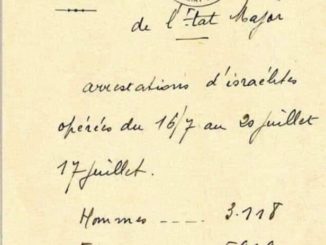 de l'Etat Major
arrestations d'israélites
opérées du 16/7 au 20 juillet
17 juillet.
Hommes ---- 3.118